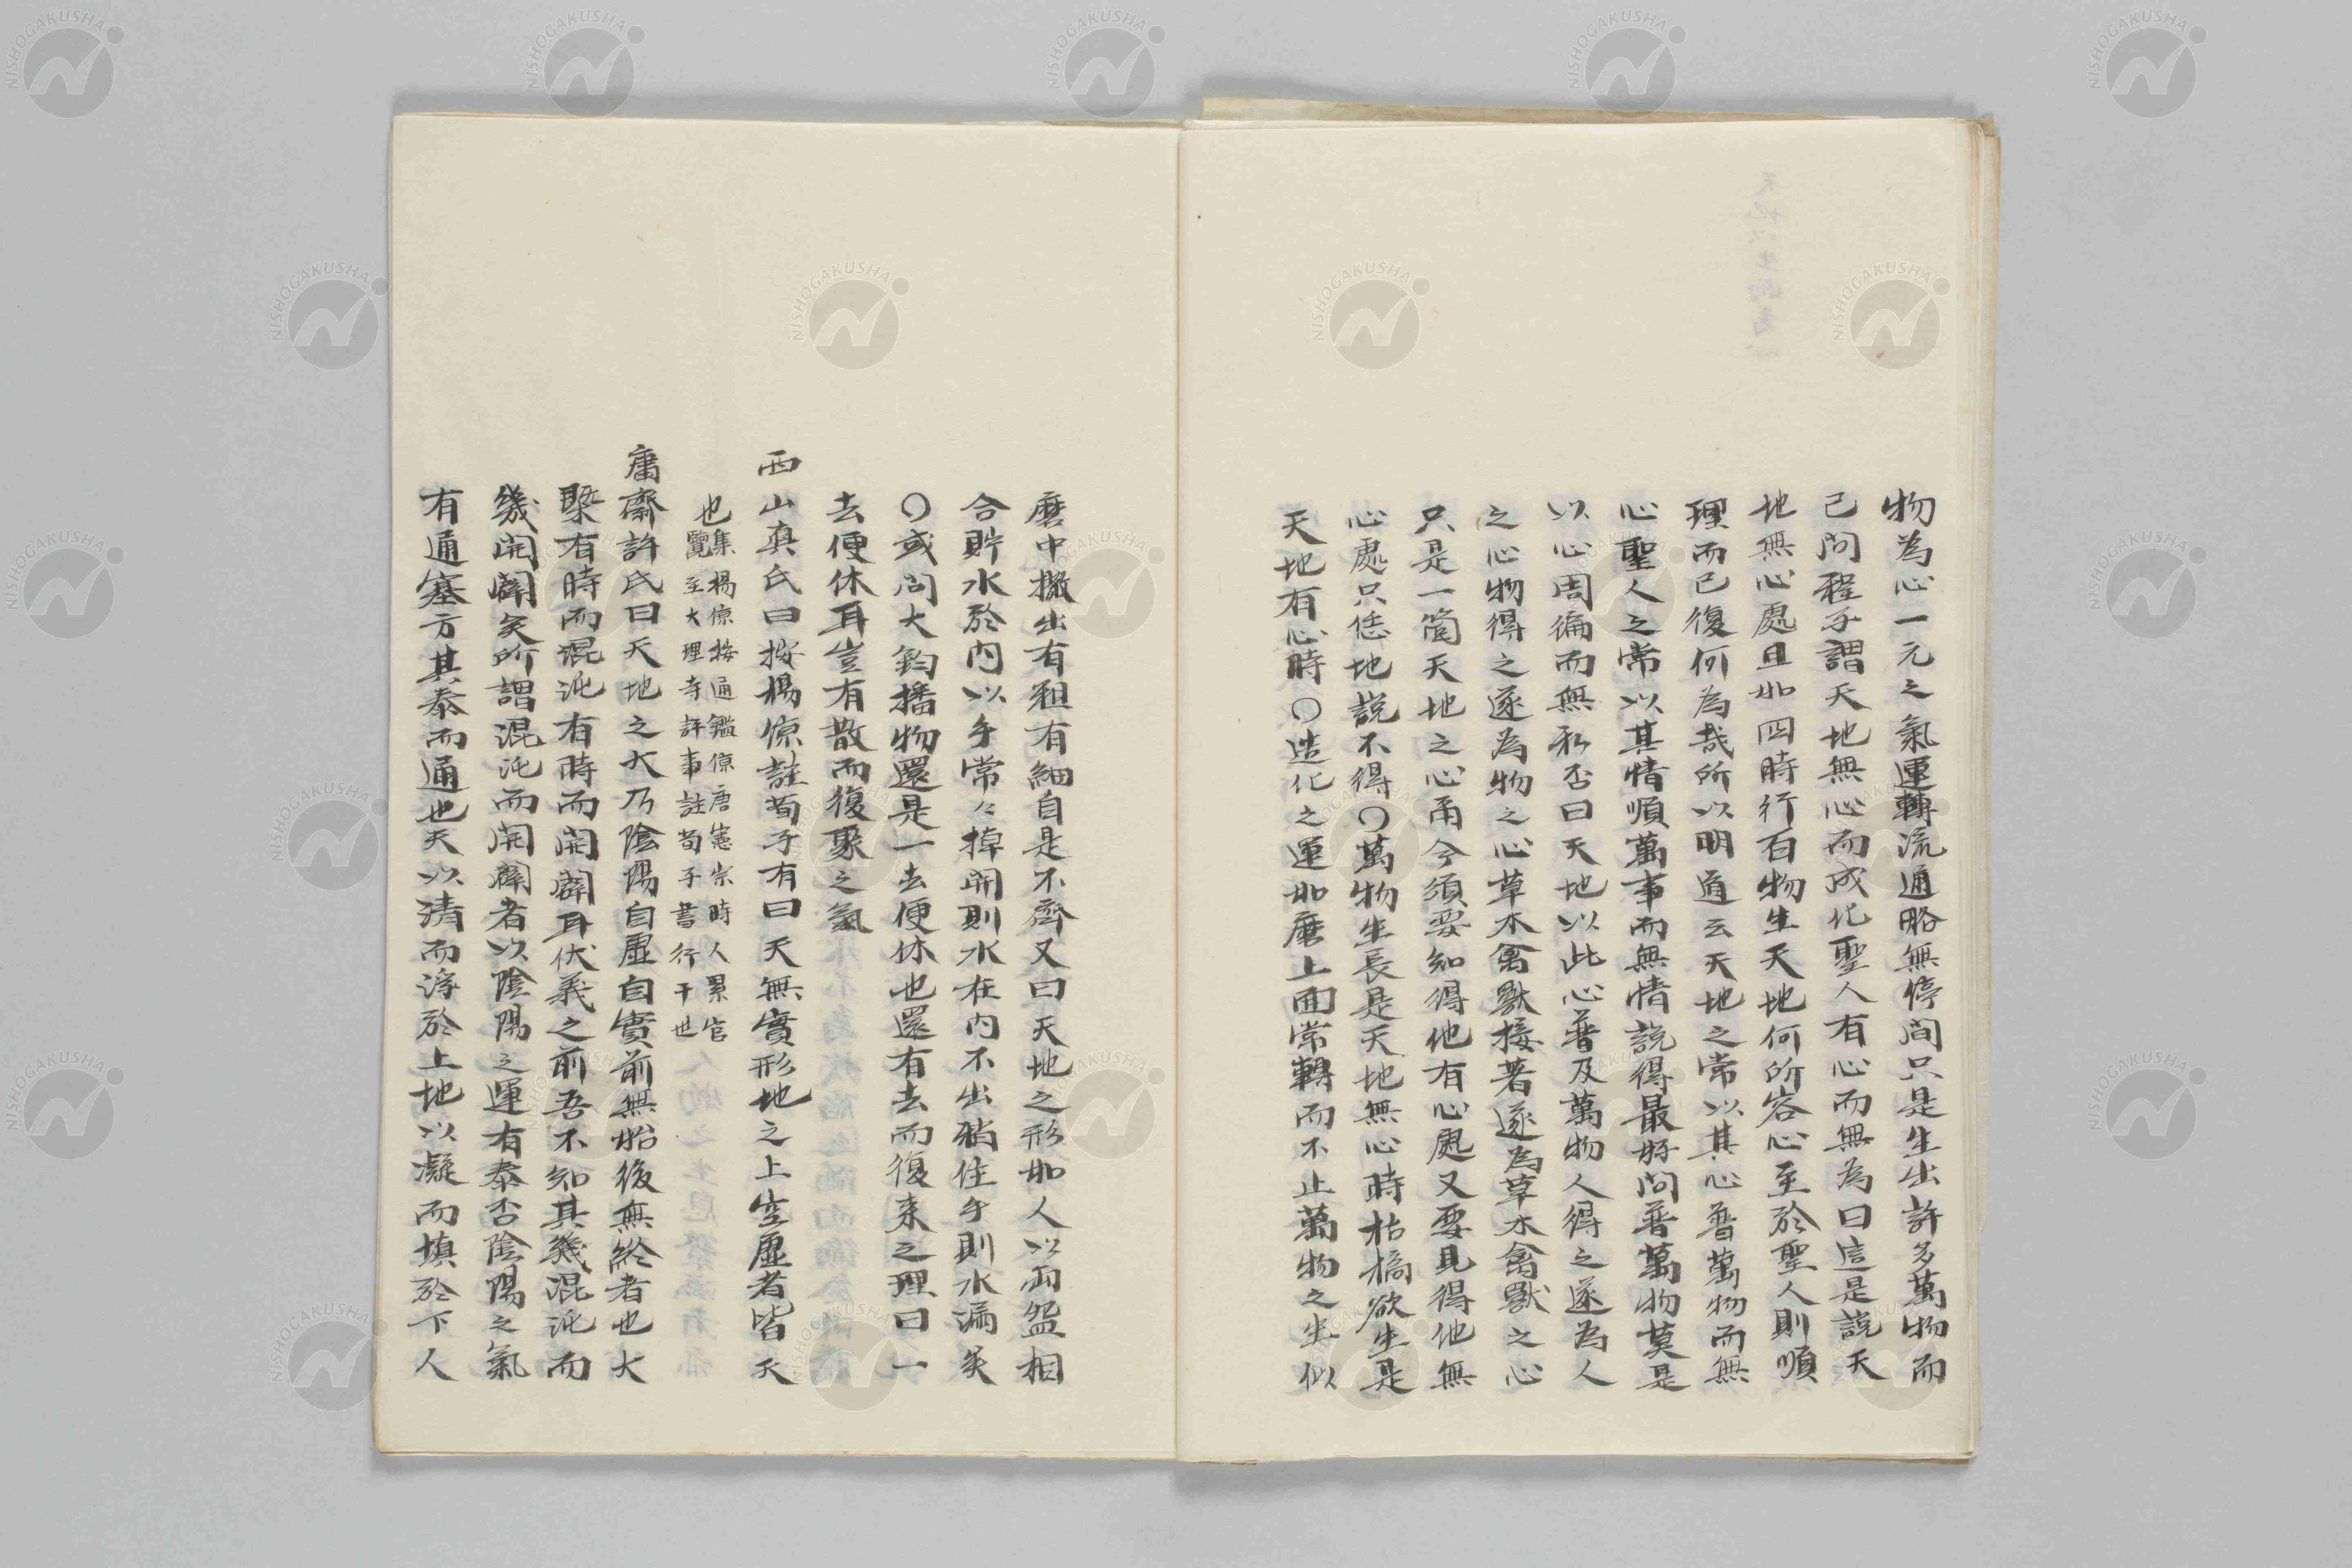 物為心一元之氣運轉流通略無停間只是生出許多萬物而
已問程子謂天地無心而成化聖人有心而無為曰這是說天
地無心處且如四時行百物生天地何所容心至於聖人則順
理而已復何為哉所以明道云天地之常以其心普萬物而無
心聖人之常以其情順萬事而無情説得最好問普萬物莫是
以心周徧而無私否曰天地以此心普及萬物人得之遂為人
之心物得之遂為物之心草木禽獸接著遂為草木禽獸之心
只是一箇天地之心甬今須要知得他有心處又要見得他無
心處只恁地説不得○萬物生長是天地無心時枯槁欲生是
天地有心時○造化之運如磨上面常轉而不止萬物之生似
磨中撒出有粗有細自是不齊又曰天地之形如人以兩盌相
合貯水於内以手常々掉開則水在内不出稍住手則水漏矣
○或問大鈞播物還是一去便休也還有去而復来之理曰一
去便休耳豈有散而復聚之氣
西山真氏曰按楊倞註荀子有曰天無實形地之上空虛者皆天
也
集楊倞按通鑑倞唐憲宗時人累官
覽至大理寺評事註荀子書行于世
庸齋許氏曰天地之大乃陰陽自虛自實前無始後無終者也大
槩有時而混沌有時而開闢耳伏羲之前吾不知其幾混沌而
幾開闢矣所謂混沌而開闢者以陰陽之運有泰否陰陽之氣
有通塞方其泰而通也天以清而浮於上地以凝而填於下人
NISHOGAKUSHA